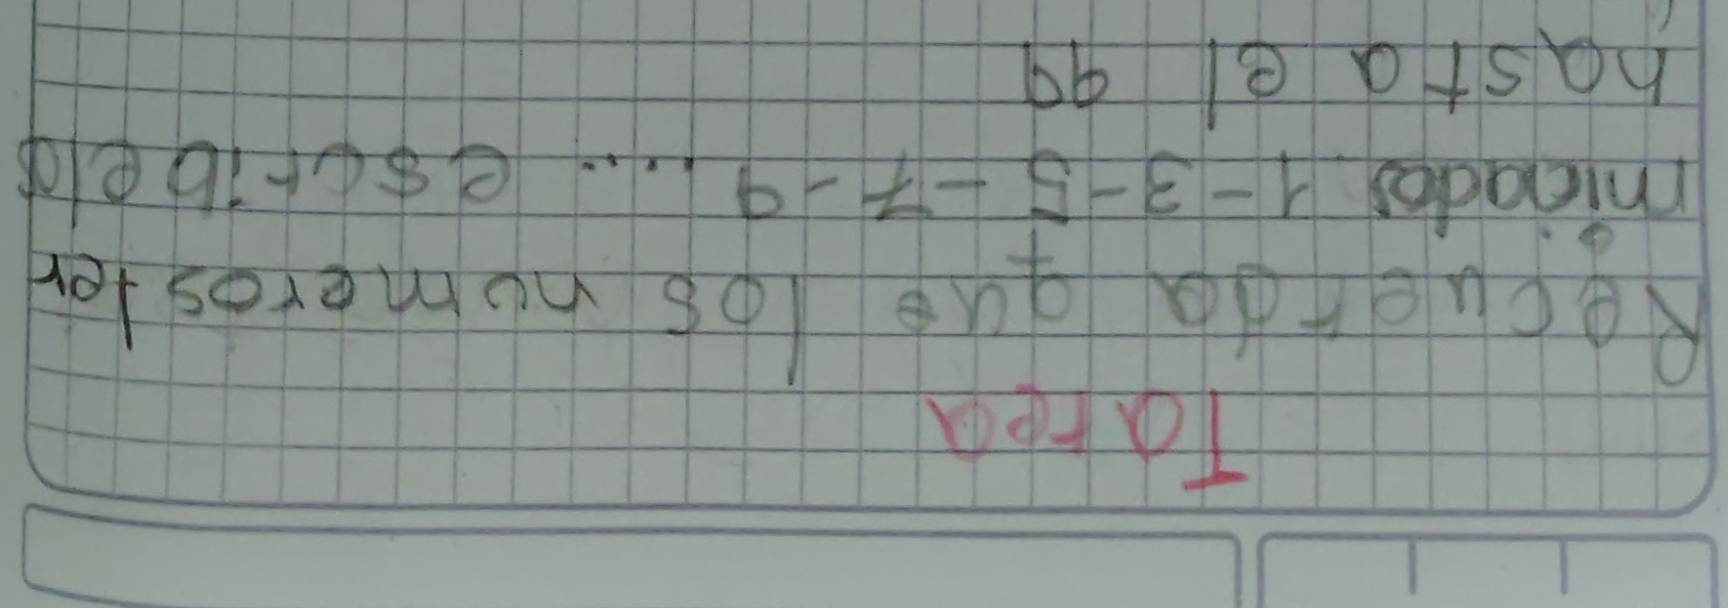 Tarea
Recuerda que los numeros ter
miados 1-3-5-7-9.... escribelo
hasta el 99